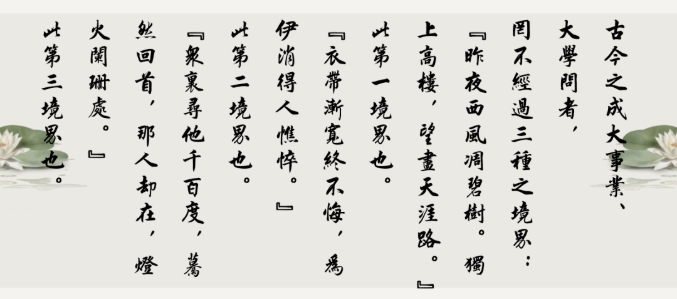 古今之成大事業、
大學問者，
罔不經過三種之境界：
『昨夜西風凋碧樹。獨
上高樓，望盡天涯路。』
此第一境界也。
『衣帶漸寬終不悔，爲
伊消得人憔悴。』
此第二境界也。
『衆裏尋他千百度，驀
然回首，那人却在，燈
火闌珊處。』
此第三境界也。